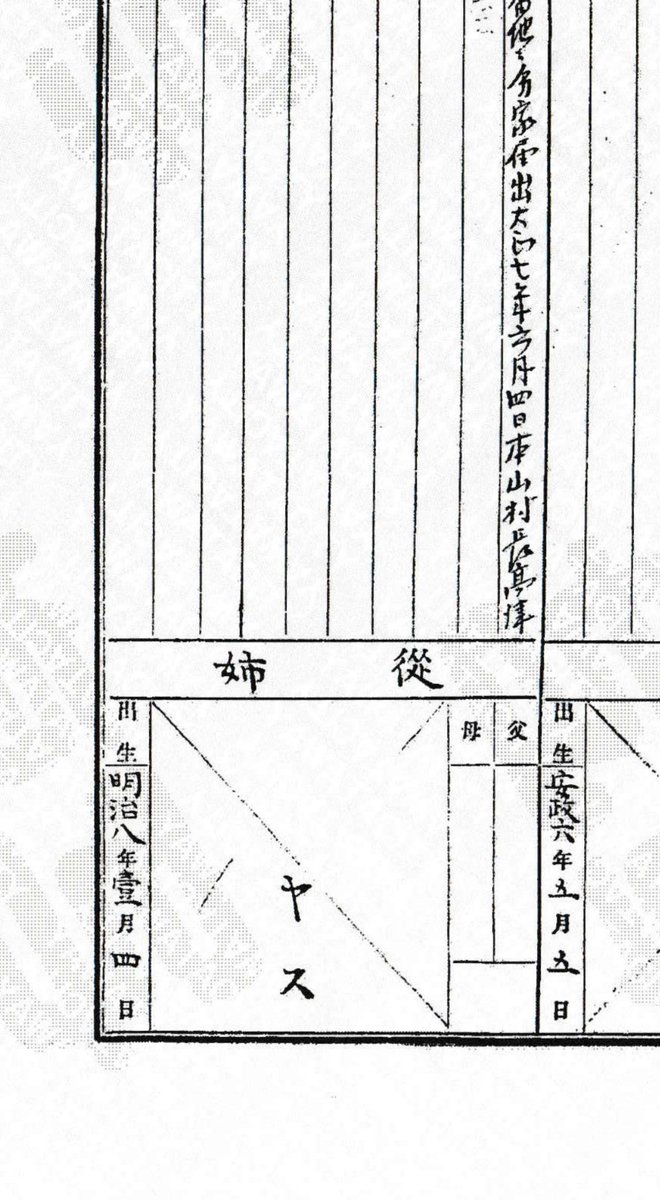 出生 安政六年五月五日
番地ニ分家届出大正七年六月四日本山村長高津
從姉
父
母
ヤス
出生 明治八年壹月四日